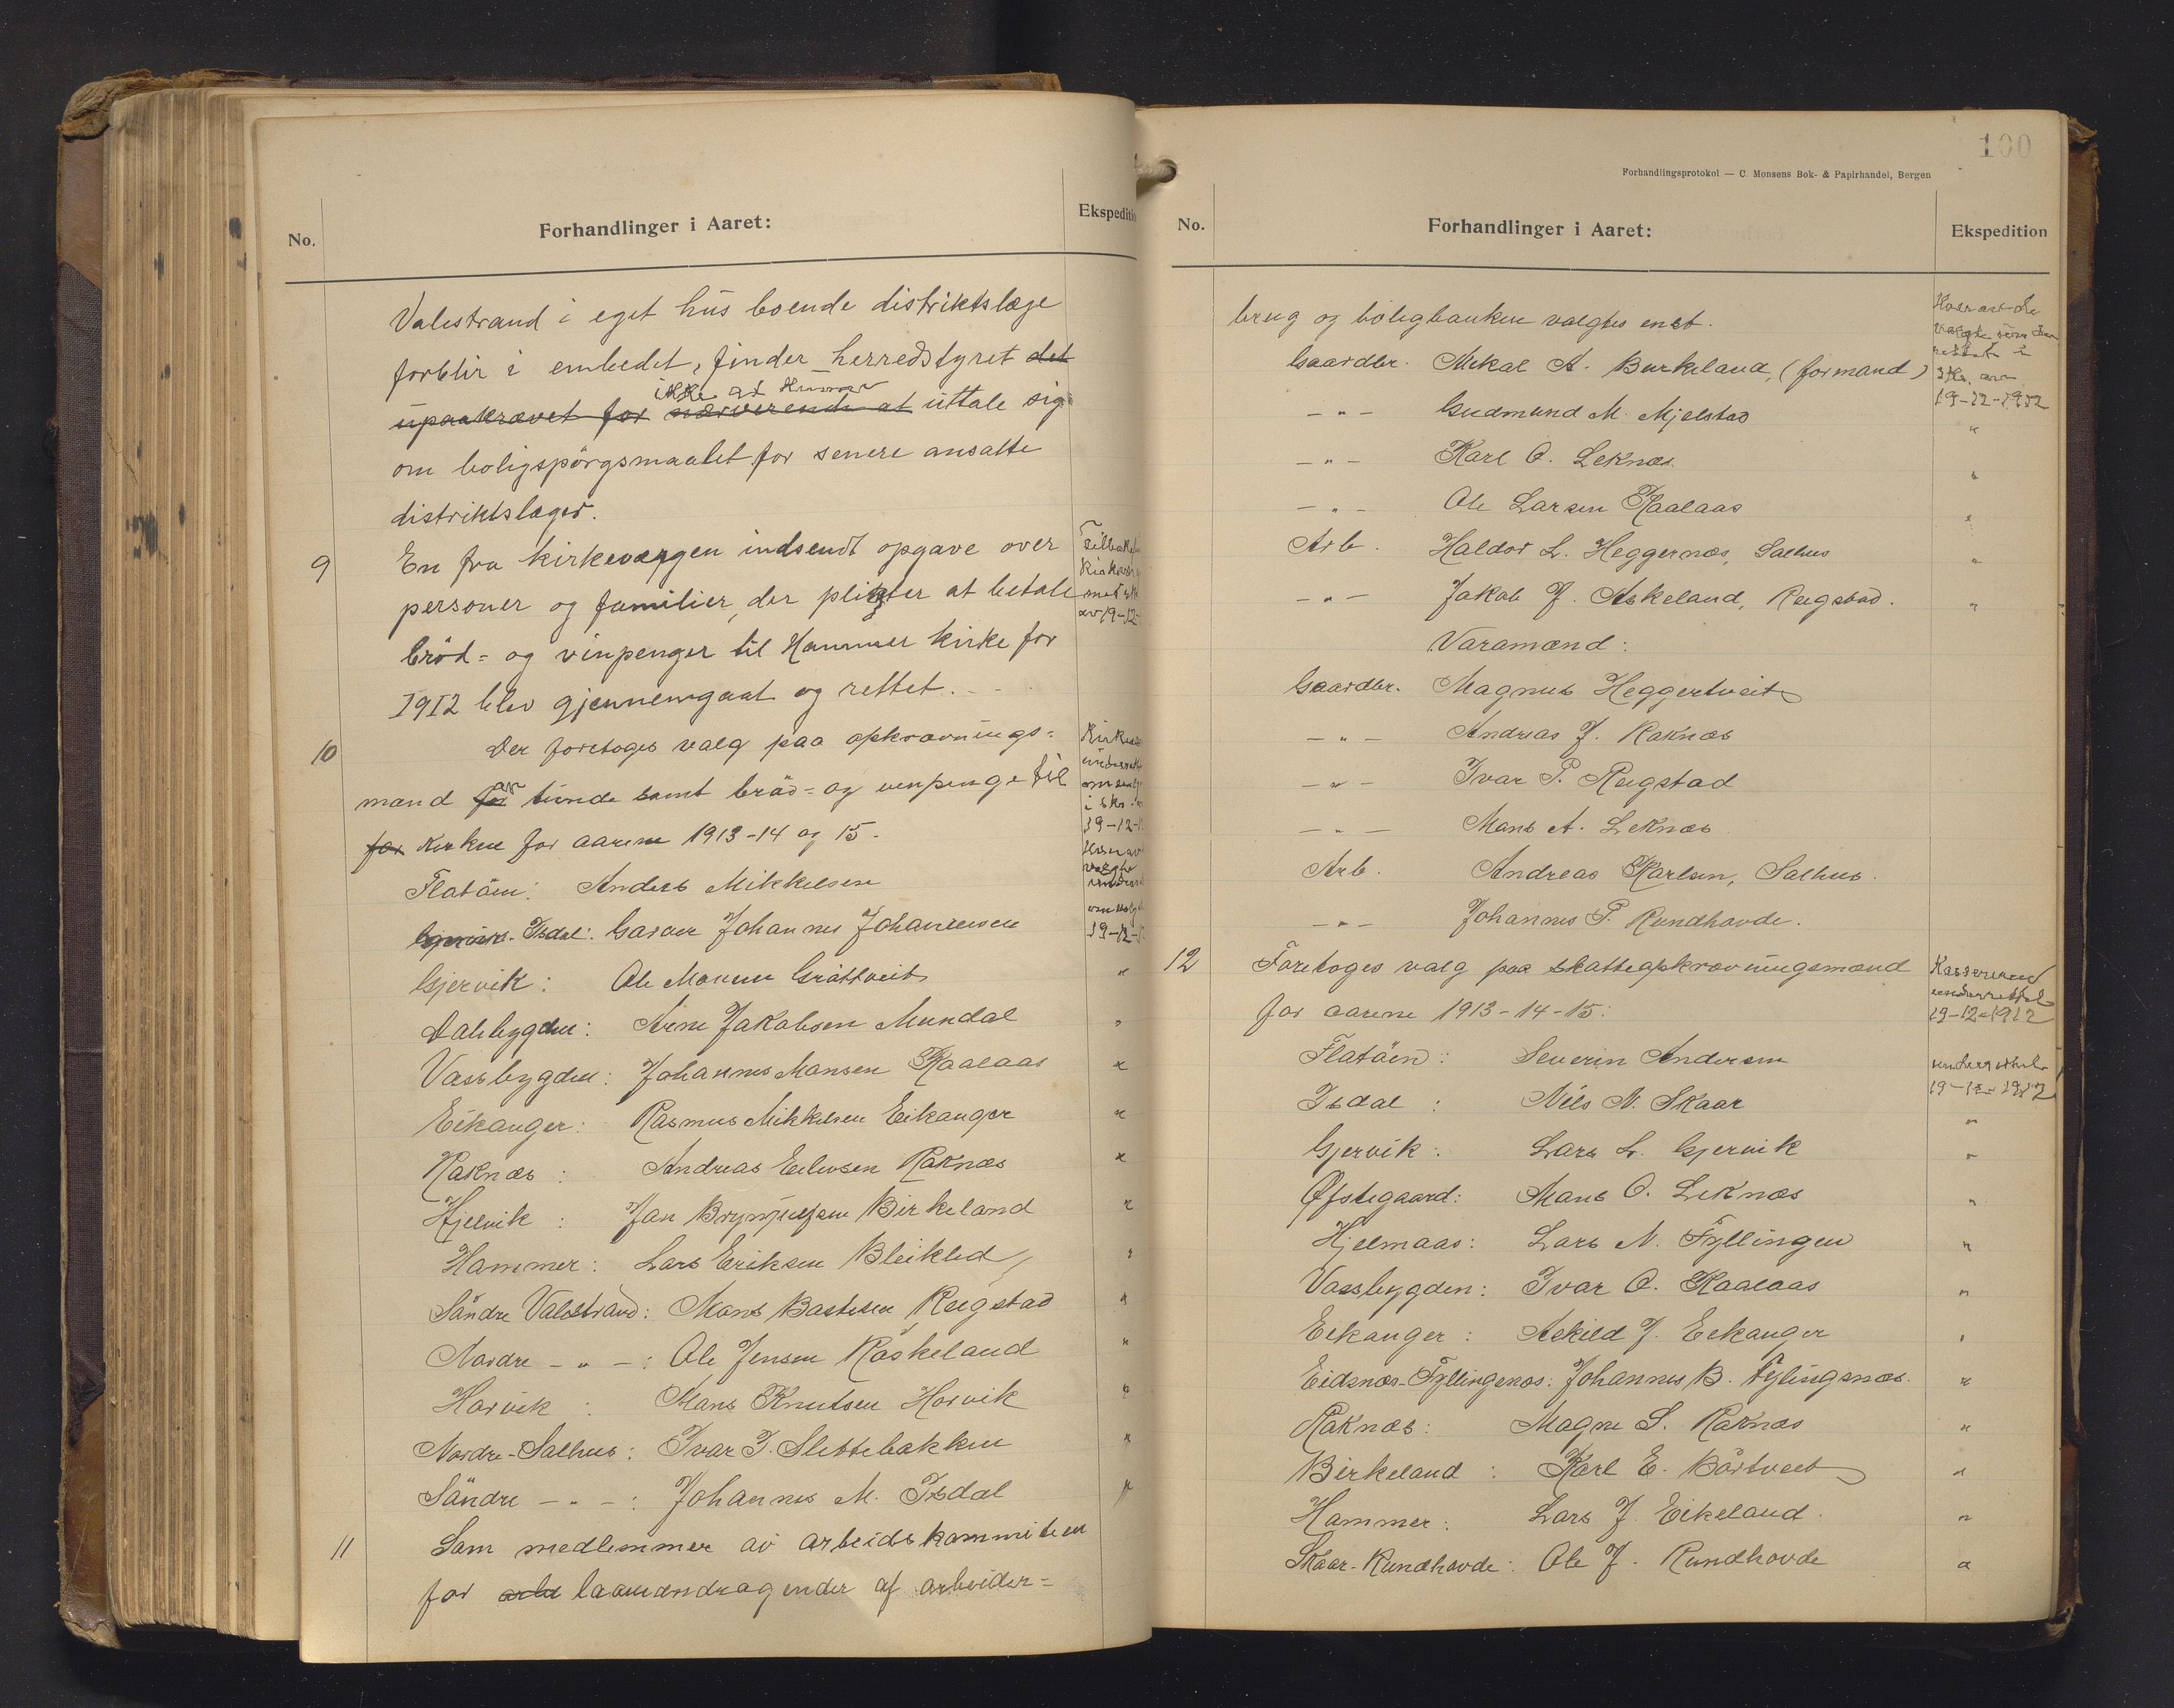 No.
Forhandlinger i Aaret:
Ekspediti
Valestrand i eget hus boende distriktslæge
forblir i embedet, finder herredstyret det
ikke at
upaakrævet for nærværende at uttale sig
om boligspörgsmaalet for senere ansatte
distriktslæger.
9 En fra kirkeværgen indsendt opgave over
personer og familier, der pligter at betale
bröd= og vinpenger til Hammer kirke for
1912 blev gjennemgaat og rettet.
av 19-12-
10 Der foretoges valg paa opkrævnings=
mand for av tiende samt bröd= og vinpenge til
for kirken for aarene 1913-14 og 15.
19-12-1
Flatöen: Anders Mikkelsen
Isdal: Garver Johannes Johannesen
19-12-1
Gjervik: Ole Monsen Gråttveit "
Dalebygden: Arne Jakobsen Mundal "
Vassbygden: Johannes Monsen Kaalaas "
Eikanger: Rasmus Mikkelsen Eikanger "
Raknæs: Andreas Eilevsen Raknæs "
Hjelvik: Jan Brynjulfsen Birkeland "
Hammer: Lars Eriksen Bleiklid "
Söndre Valestrand: Mons Bastesen Reigstad "
Nordre - " - : Ole Jensen Röskeland "
Horvik: Mons Knutsen Horvik "
Nordre-Salhus: Ivar T. Slettebakken "
Söndre - " - : Johannes M. Isdal "
11 Som medlemmer av arbeidskommiteen
for arbe laaneandragender af arbeider=
100
Forhandlingsprotokol — C. Monsens Bok- & Papirhandel, Bergen
No.
Forhandlinger i Aaret:
Ekspedition
brug og boligbanken valgtes enst.
Hver av de
valgte
i
Gaardbr. Mikal A. Birkeland, (formand)
19-12-1912
- " - Gudmund M. Mjelstad "
- " - Karl O. Leknæs "
- " - Ole Larsen Kaalaas "
Arb. Haldor L. Heggernæs, Salhus "
- " - Jakob J. Askeland, Reigstad. "
Varamænd:
Gaardbr. Magnus Heggertveit
- " - Andreas J. Raknæs
- " - Ivar P. Reigstad
- " - Mons A. Leknæs
Arb. Andreas Karlsen, Salhus.
- " - Johannes P. Rundhovde.
12 Foretoges valg paa skatteopkrævningsmænd
for aarene 1913-14-15:
Kassereren
underrettet
19-12-1912
Flatöen: Severin Andersen
underrettet
19-12-1912
Isdal: Nils N. Skaar "
Gjervik: Lars L. Gjervik "
Øfstegaard: Mons O. Leknæs "
Hjelmaas: Lars N. Fyllingen "
Vassbygden: Ivar O. Kaalaas "
Eikanger: Askild J. Eikanger "
Eidsnæs-Fyllingsnæs: Johannes B. Fylingsnæs. "
Raknæs: Magne S. Raknæs "
Birkeland: Karl E. Börtveit "
Hammer: Lars J. Eikeland. "
Skaar-Rundhovde: Ole J. Rundhovde "